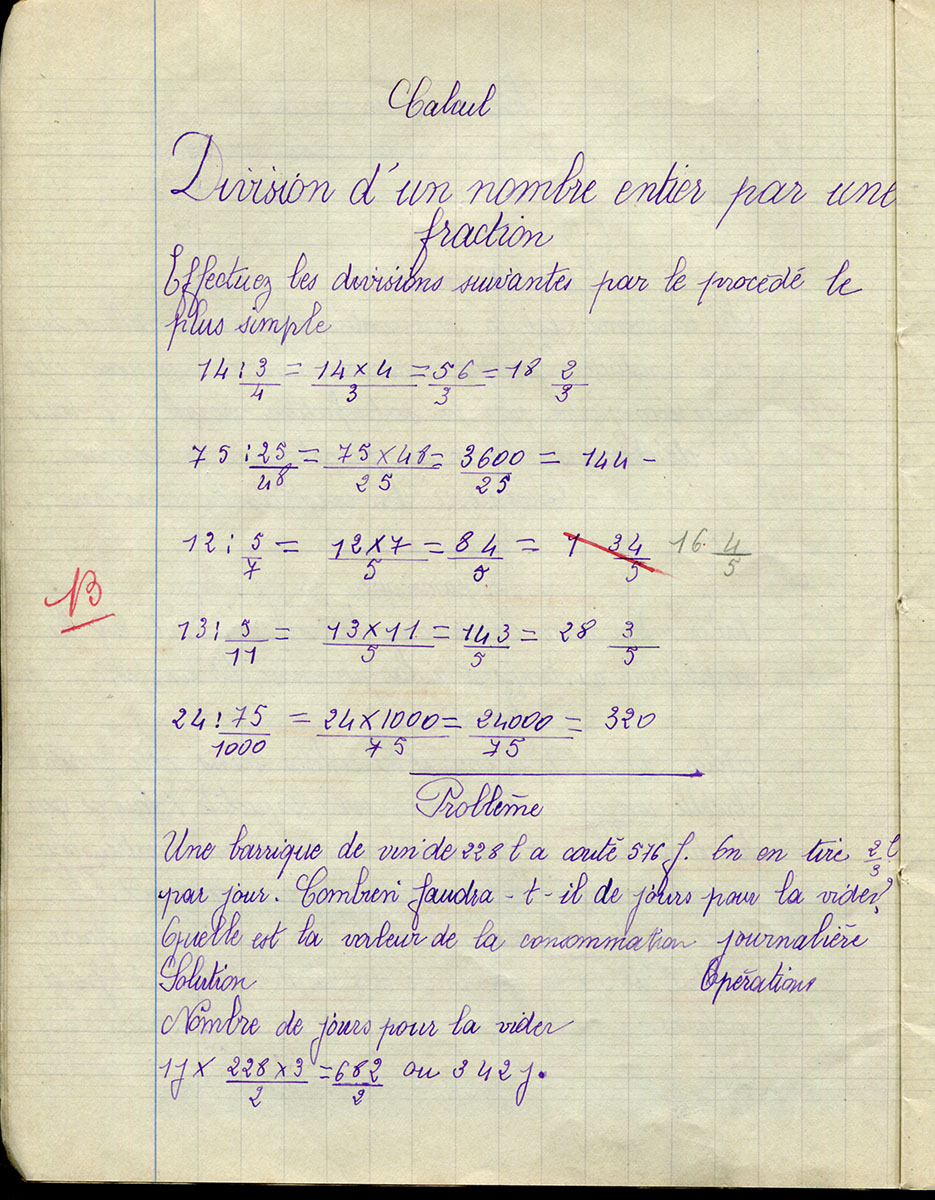 Calcul
Division d'un nombre entier par une
fraction
Effectuez les divisions suivantes par le procédé le
plus simple
14 : 3/4 = 14 x 4/3 = 56/3 = 18 2/3
75 : 25/48 = 75 x 48/25 = 3600/25 = 144 -
12 : 5/7 = 12 x 7/5 = 84/5 = 1 34/5 16 4/5
B
13 : 5/11 = 13 x 11/5 = 143/5 = 28 3/5
24 : 75/1000 = 24 x 1000/75 = 24000/75 = 320
Problème
Une barrique de vin de 228 l a couté 576 f. On en tire 2/3 l
par jour. Combien faudra-t-il de jours pour la vider?
Quelle est la valeur de la consommation journalière
Solution Opérations
Nombre de jours pour la vider
1j x 228 x 3/2 = 682/2 ou 342 j.